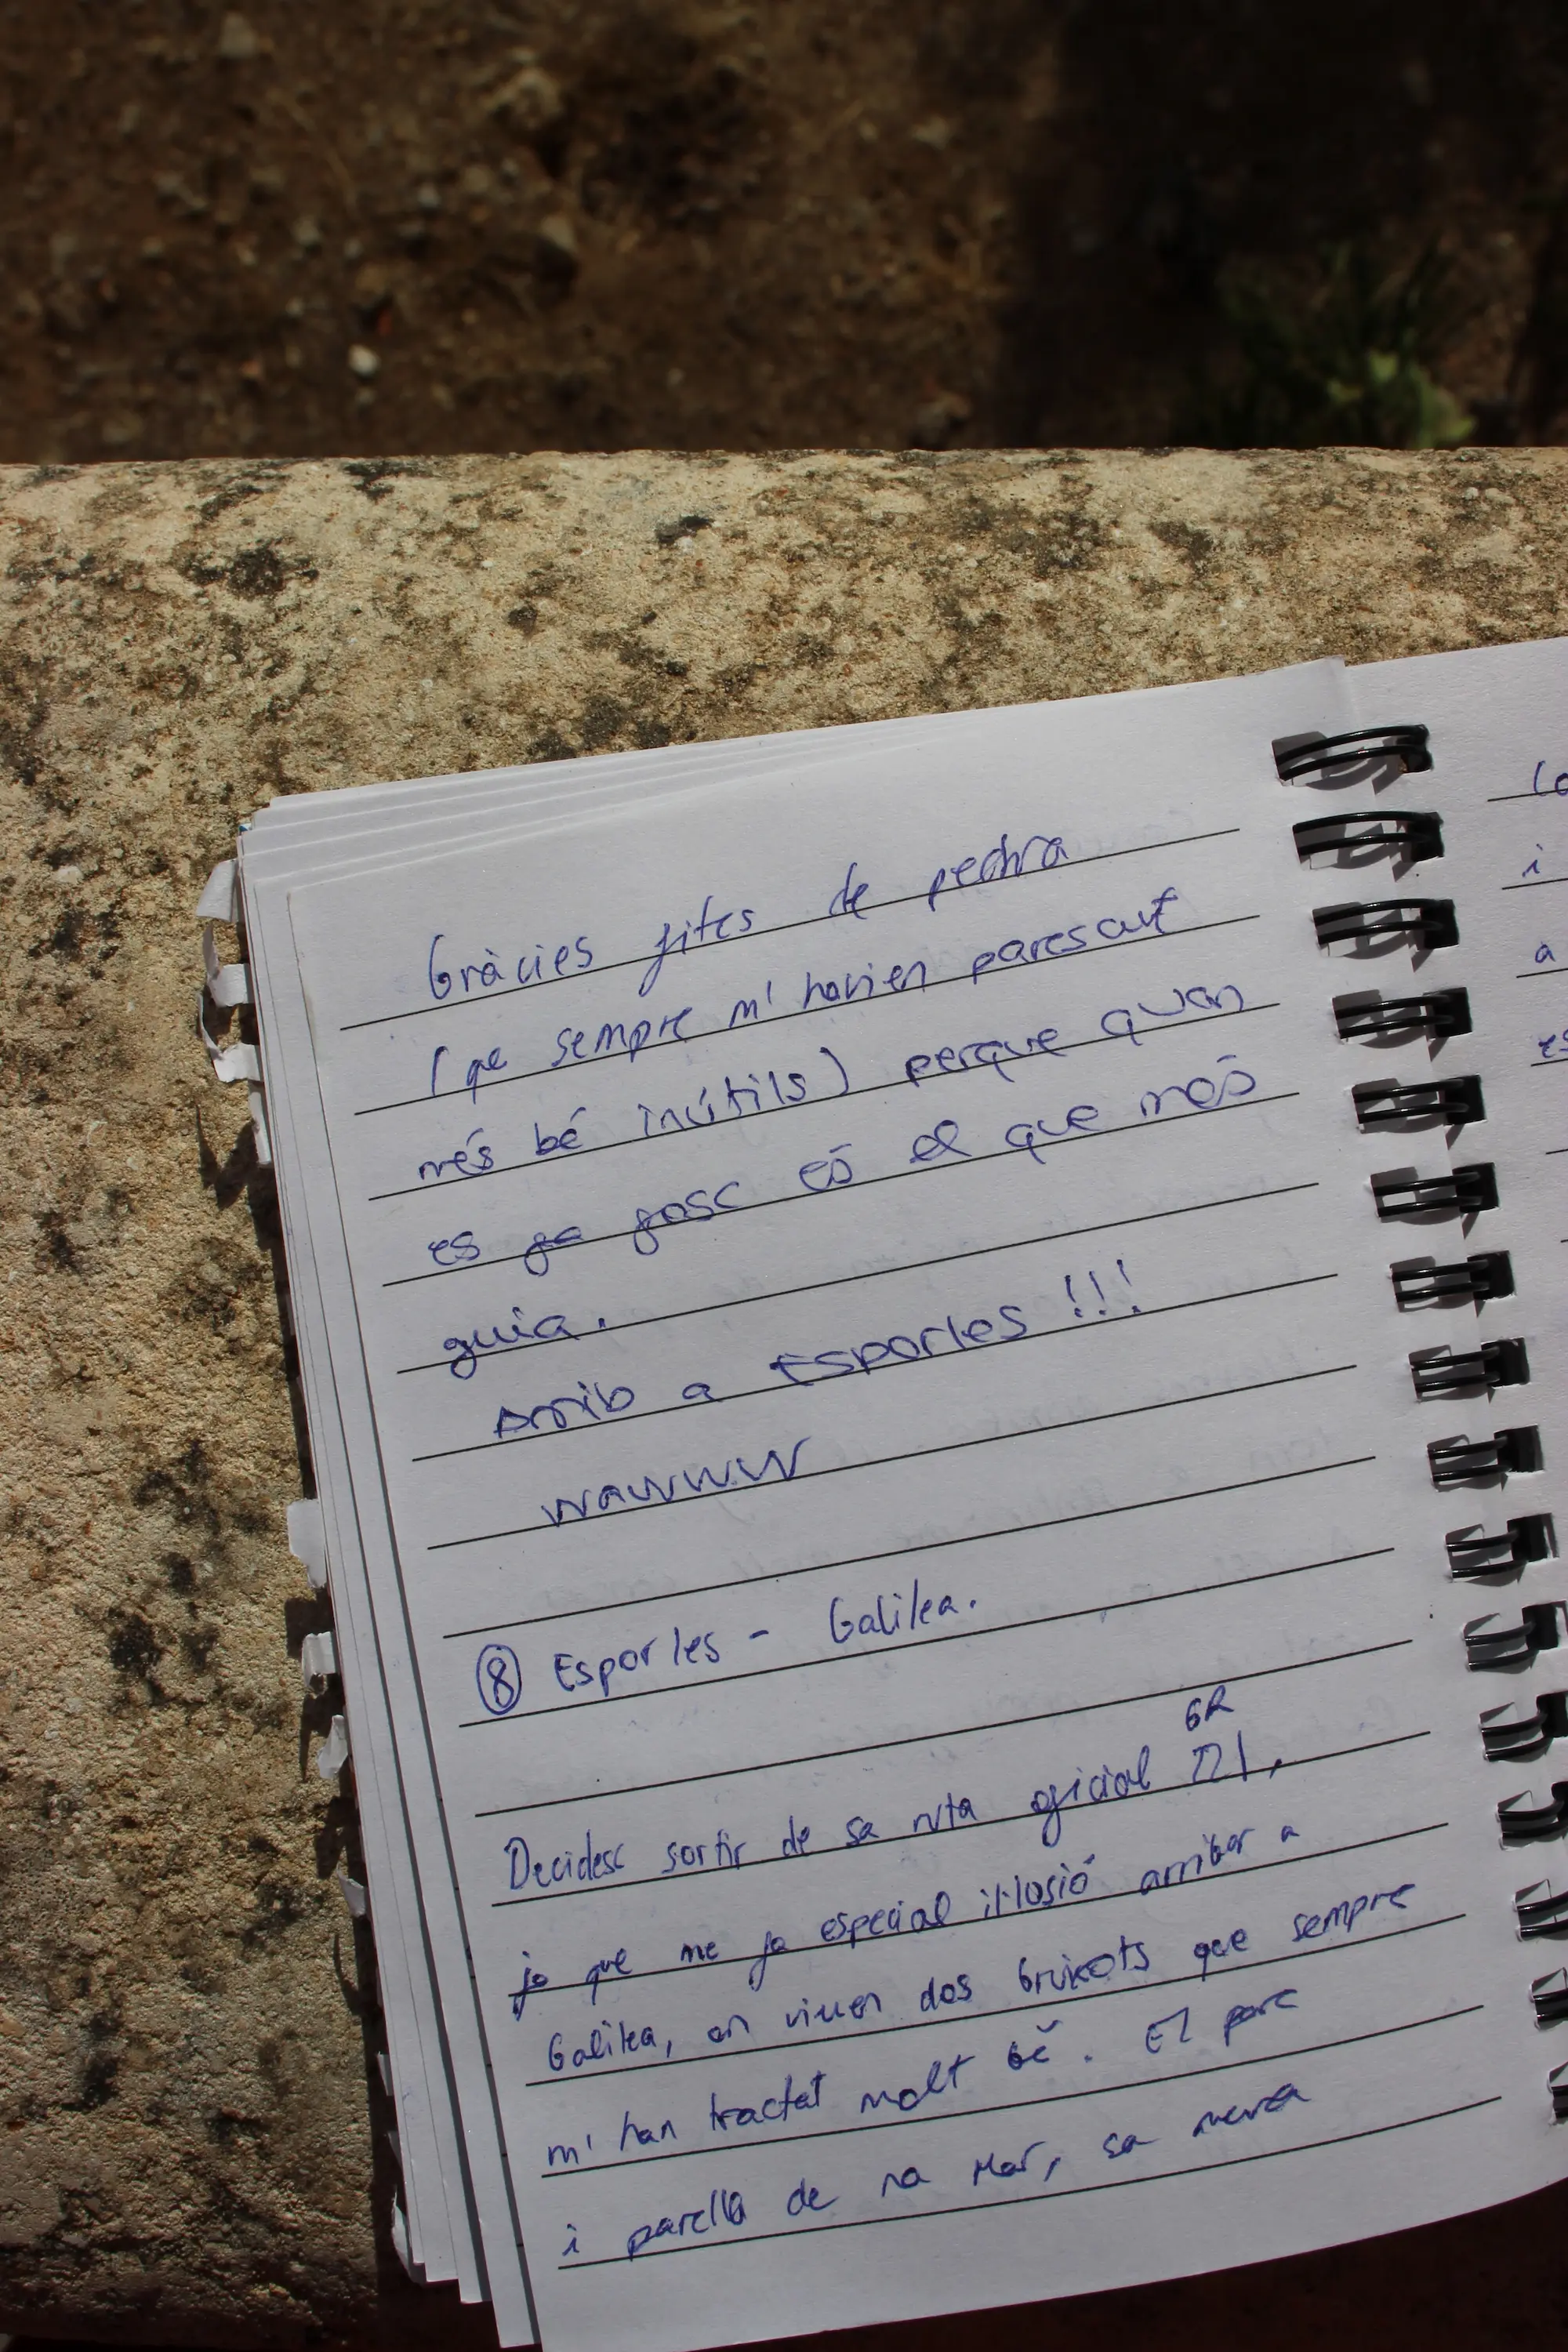 Gràcies fites de pedra
(que sempre m'havien parescut
més bé inútils) perque quan
es fa fosc és el que més
guia.
Arrib a Esporles!!!
WAWWW
⑧ Esporles - Galilea.
GR
Decidesc sortir de sa ruta oficial 221,
ja que me fa especial il·lusió arribar a
Galilea, on viuen dos bruixots que sempre
m'han tractat molt bé. El pare
i parella de na Mar, sa meva
i
a
es